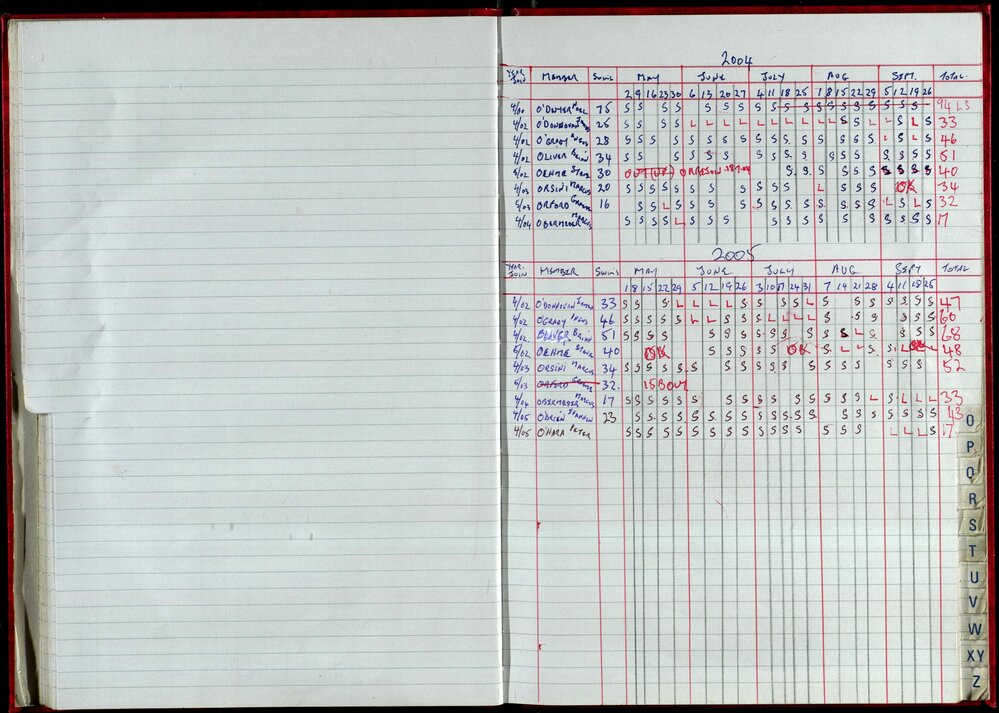 2004
YEAR JOIN MEMBER SWIMS MAY JUNE JULY AUG SEPT. TOTAL.
2 9 16 23 30 6 13 20 27 4 11 18 25 1 8 15 22 29 5 12 19 26
O'DWYER NOEL 75 S S S S S S S S S S S S S S S S S S S S 94 LS
4/02 O'DONOVAN JAMES 26 S S S S L L L L L L L L L L L S S L L S L S 33
4/02 O'GRADY ANGUS 28 S S S S S S S S S S S S S S S L S L S 46
4/02 OLIVER BRIAN 34 S S S S S S S S S S S S S S S S S 51
5/02 OEHME STEVE 30 OUT S S S S S S S S S 40
4/03 ORSINI MARCUS 20 S S S S S S S S S S S S L S S S OK 34
5/03 ORFORD GRAEME 16 S S L S S S S S S S S S S S S S L S L S 32
4/04 OBERMEYER MARCUS S S S S L S S S S S S S S S S S S S S 17
2005
YEAR. JOIN MEMBER SWIMS MAY JUNE JULY AUG SEPT TOTAL
1 8 15 22 29 5 12 19 26 3 10 17 24 31 7 14 21 28 4 11 18 25
4/02 O'DONOVAN JAMES 33 S S S L L L L S S S S S L S S S S S S S 47
4/02 O'GRADY ANGUS 46 S S S S S L L S S S L L L L S S S S S 60
4/02 OLIVER BRIAN 51 S S S S S S S S S S S S S L S S S S 68
5/02 OEHME STEVE 40 OK S S S S S S OK S L L S S L OK L 48
4/03 ORSINI MARCUS 34 S S S S S S S S S S S S S S S S S S 52
5/03 ORFORD GRAEME 32. IS BOUY
4/04 OBERMEYER MARCUS 17 S S S S S S S S S S S S S S S S S L S L L L 33
4/05 O'BRIEN SHANNON 23 S S S S S S S S S S S S S S S S S S S S 43
4/05 O'HARA PETER S S S S S S S S S S S S S S S S S L L L S 17
O
P
Q
R
S
T
U
V
W
XY
Z